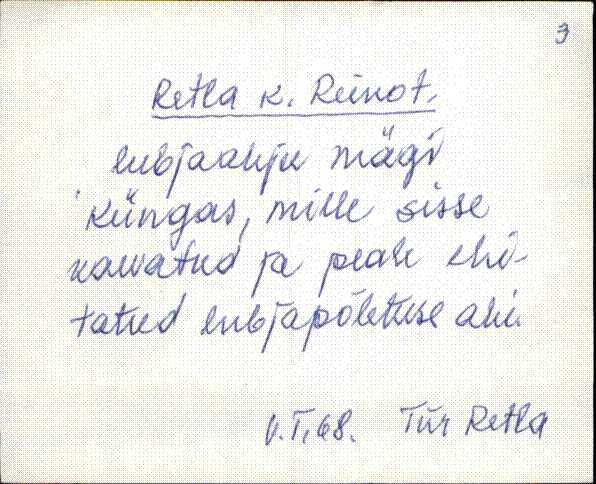 3
Retla k. Reinot.
lubjaahju mägi
Küngas, mille sisse
kaevatud ja peale ehi-
tatud lubjapõletuse ahi.
V.T. 68. Tür Retla